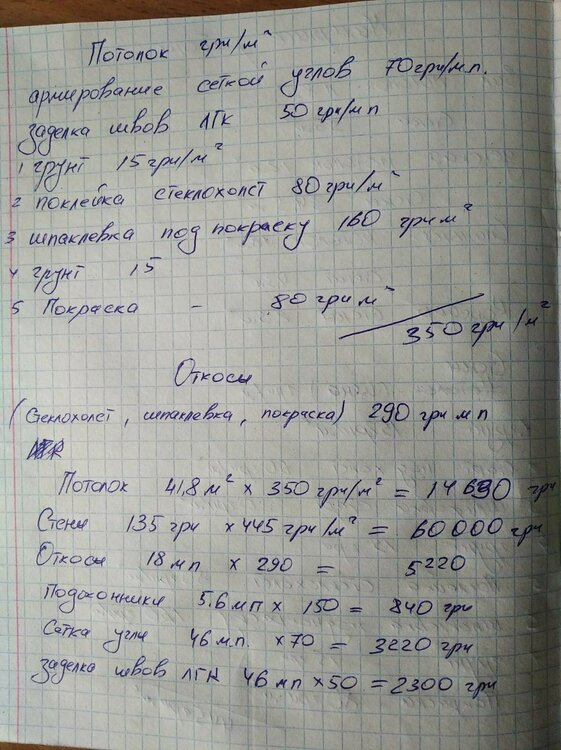 Потолок грн/м²
армирование сеткой углов 70 грн/м.п.
заделка швов ЛГК 50 грн/мп
1 грунт 15 грн/м²
2 поклейка стеклохолст 80 грн/м²
3 шпаклевка под покраску 160 грн м²
4 грунт 15
5 Покраска - 80 грн м²
350 грн/м²
Откосы
(Стеклохолст, шпаклевка, покраска) 290 грн мп
Потолок 41,8 м² х 350 грн/м² = 14 630 грн
Стены 135 грн х 445 грн/м² = 60 000 грн
Откосы 18 мп х 290 = 5220
Подоконники 5,6 мп х 150 = 840 грн
Сетка углы 46 м.п. х 70 = 3220 грн
заделка швов ЛГК 46 мп х 50 = 2300 грн